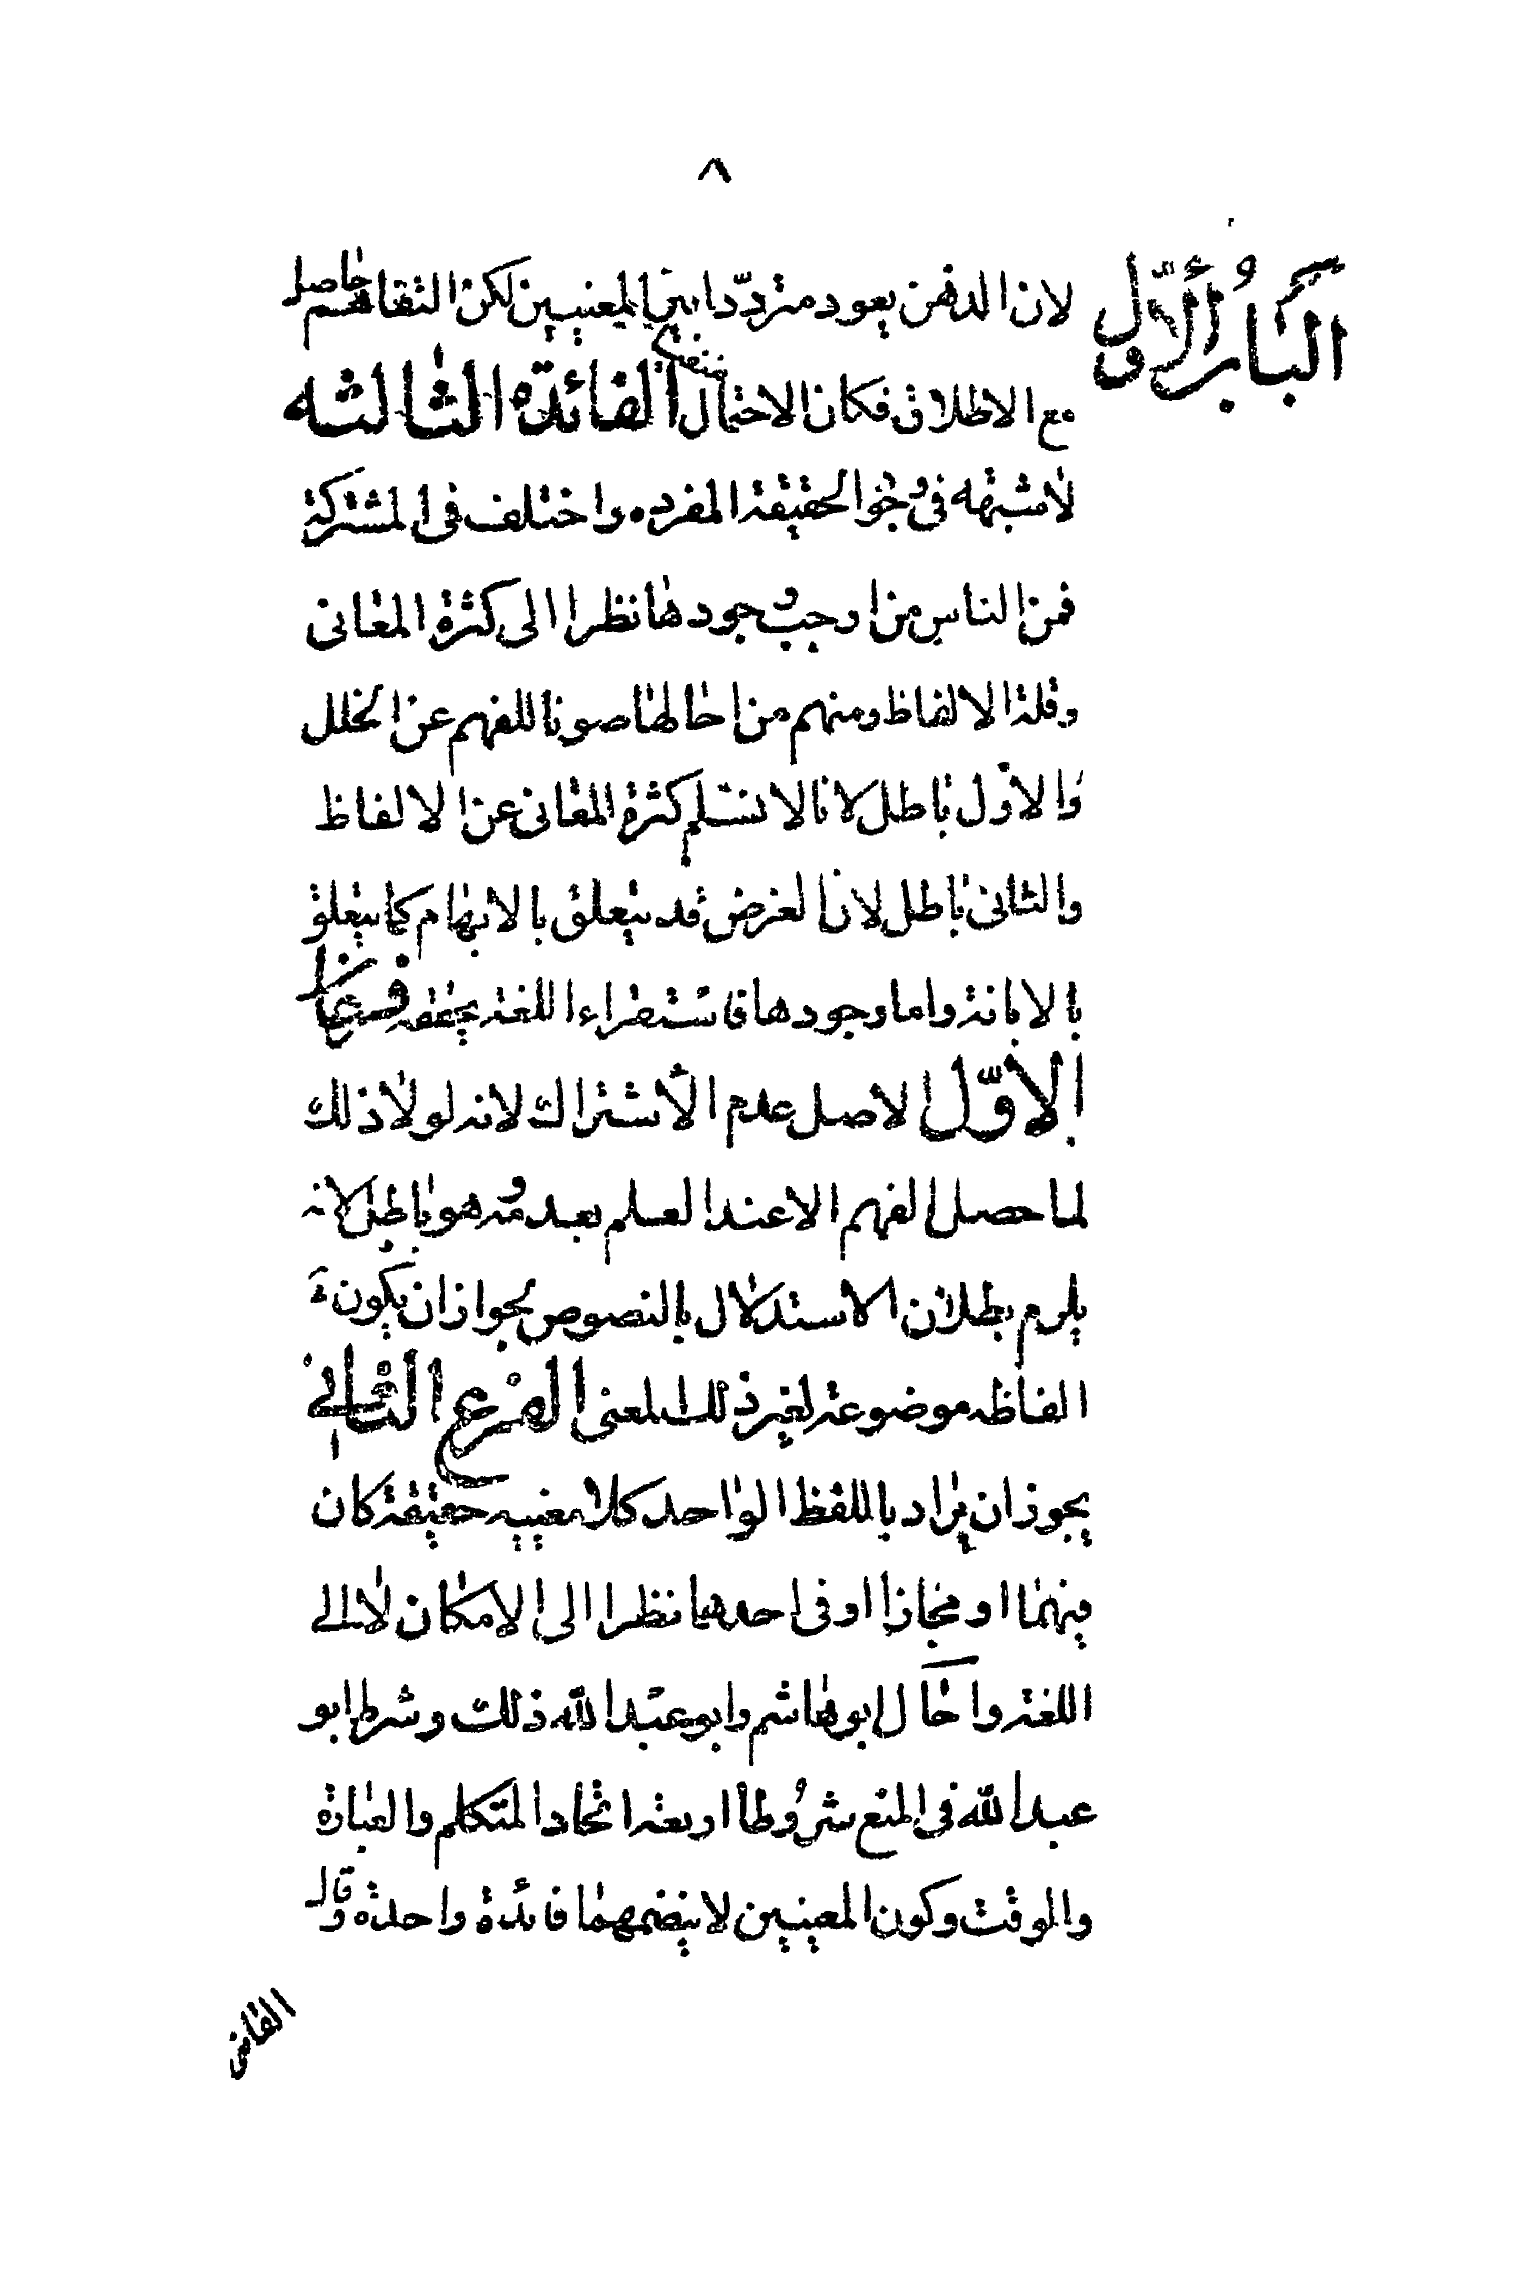 ٨
الباب الأول
لان الذهن يعود مترددا بين المعنيين لكن التفاهم حاصل
مع الاطلاق فكان الاحتمال منتفيا الفائدة الثالثه
لا شبهه فى وجود الحقيقة المفرده واختلف فى المشتركة
فمن الناس من اوجب وجودها نظرا الى كثرة المعانى
وقلة الالفاظ ومنهم من احالها صونا للفهم عن الخلل
والاول باطل لانا لا نسلم كثرة المعانى عن الالفاظ
والثانى باطل لان الغرض قد يتعلق بالابهام كما يتعلق
بالابانة واما وجودها فاستقراء اللغة يحققه فرعان
الاول الاصل عدم الاشتراك لانه لولا ذلك
لما حصل الفهم الا عند العلم بعدمه وهو باطل لانه
يلزم بطلان الاستدلال بالنصوص لجواز ان يكون
الفاظه موضوعة لغير ذلك المعنى الفرع الثانى
يجوز ان يراد باللفظ الواحد كلا معنييه حقيقة كان
فيهما او مجازا او فى احدهما نظرا الى الامكان لا الى
اللغة واحال ابو هاشم وابو عبد الله ذلك وشرط ابو
عبد الله فى المنع شروطا اربعة اتحاد المتكلم والعبارة
والوقت وكون المعنيين لا ينضمهما فائدة واحدة وقال
القاضى